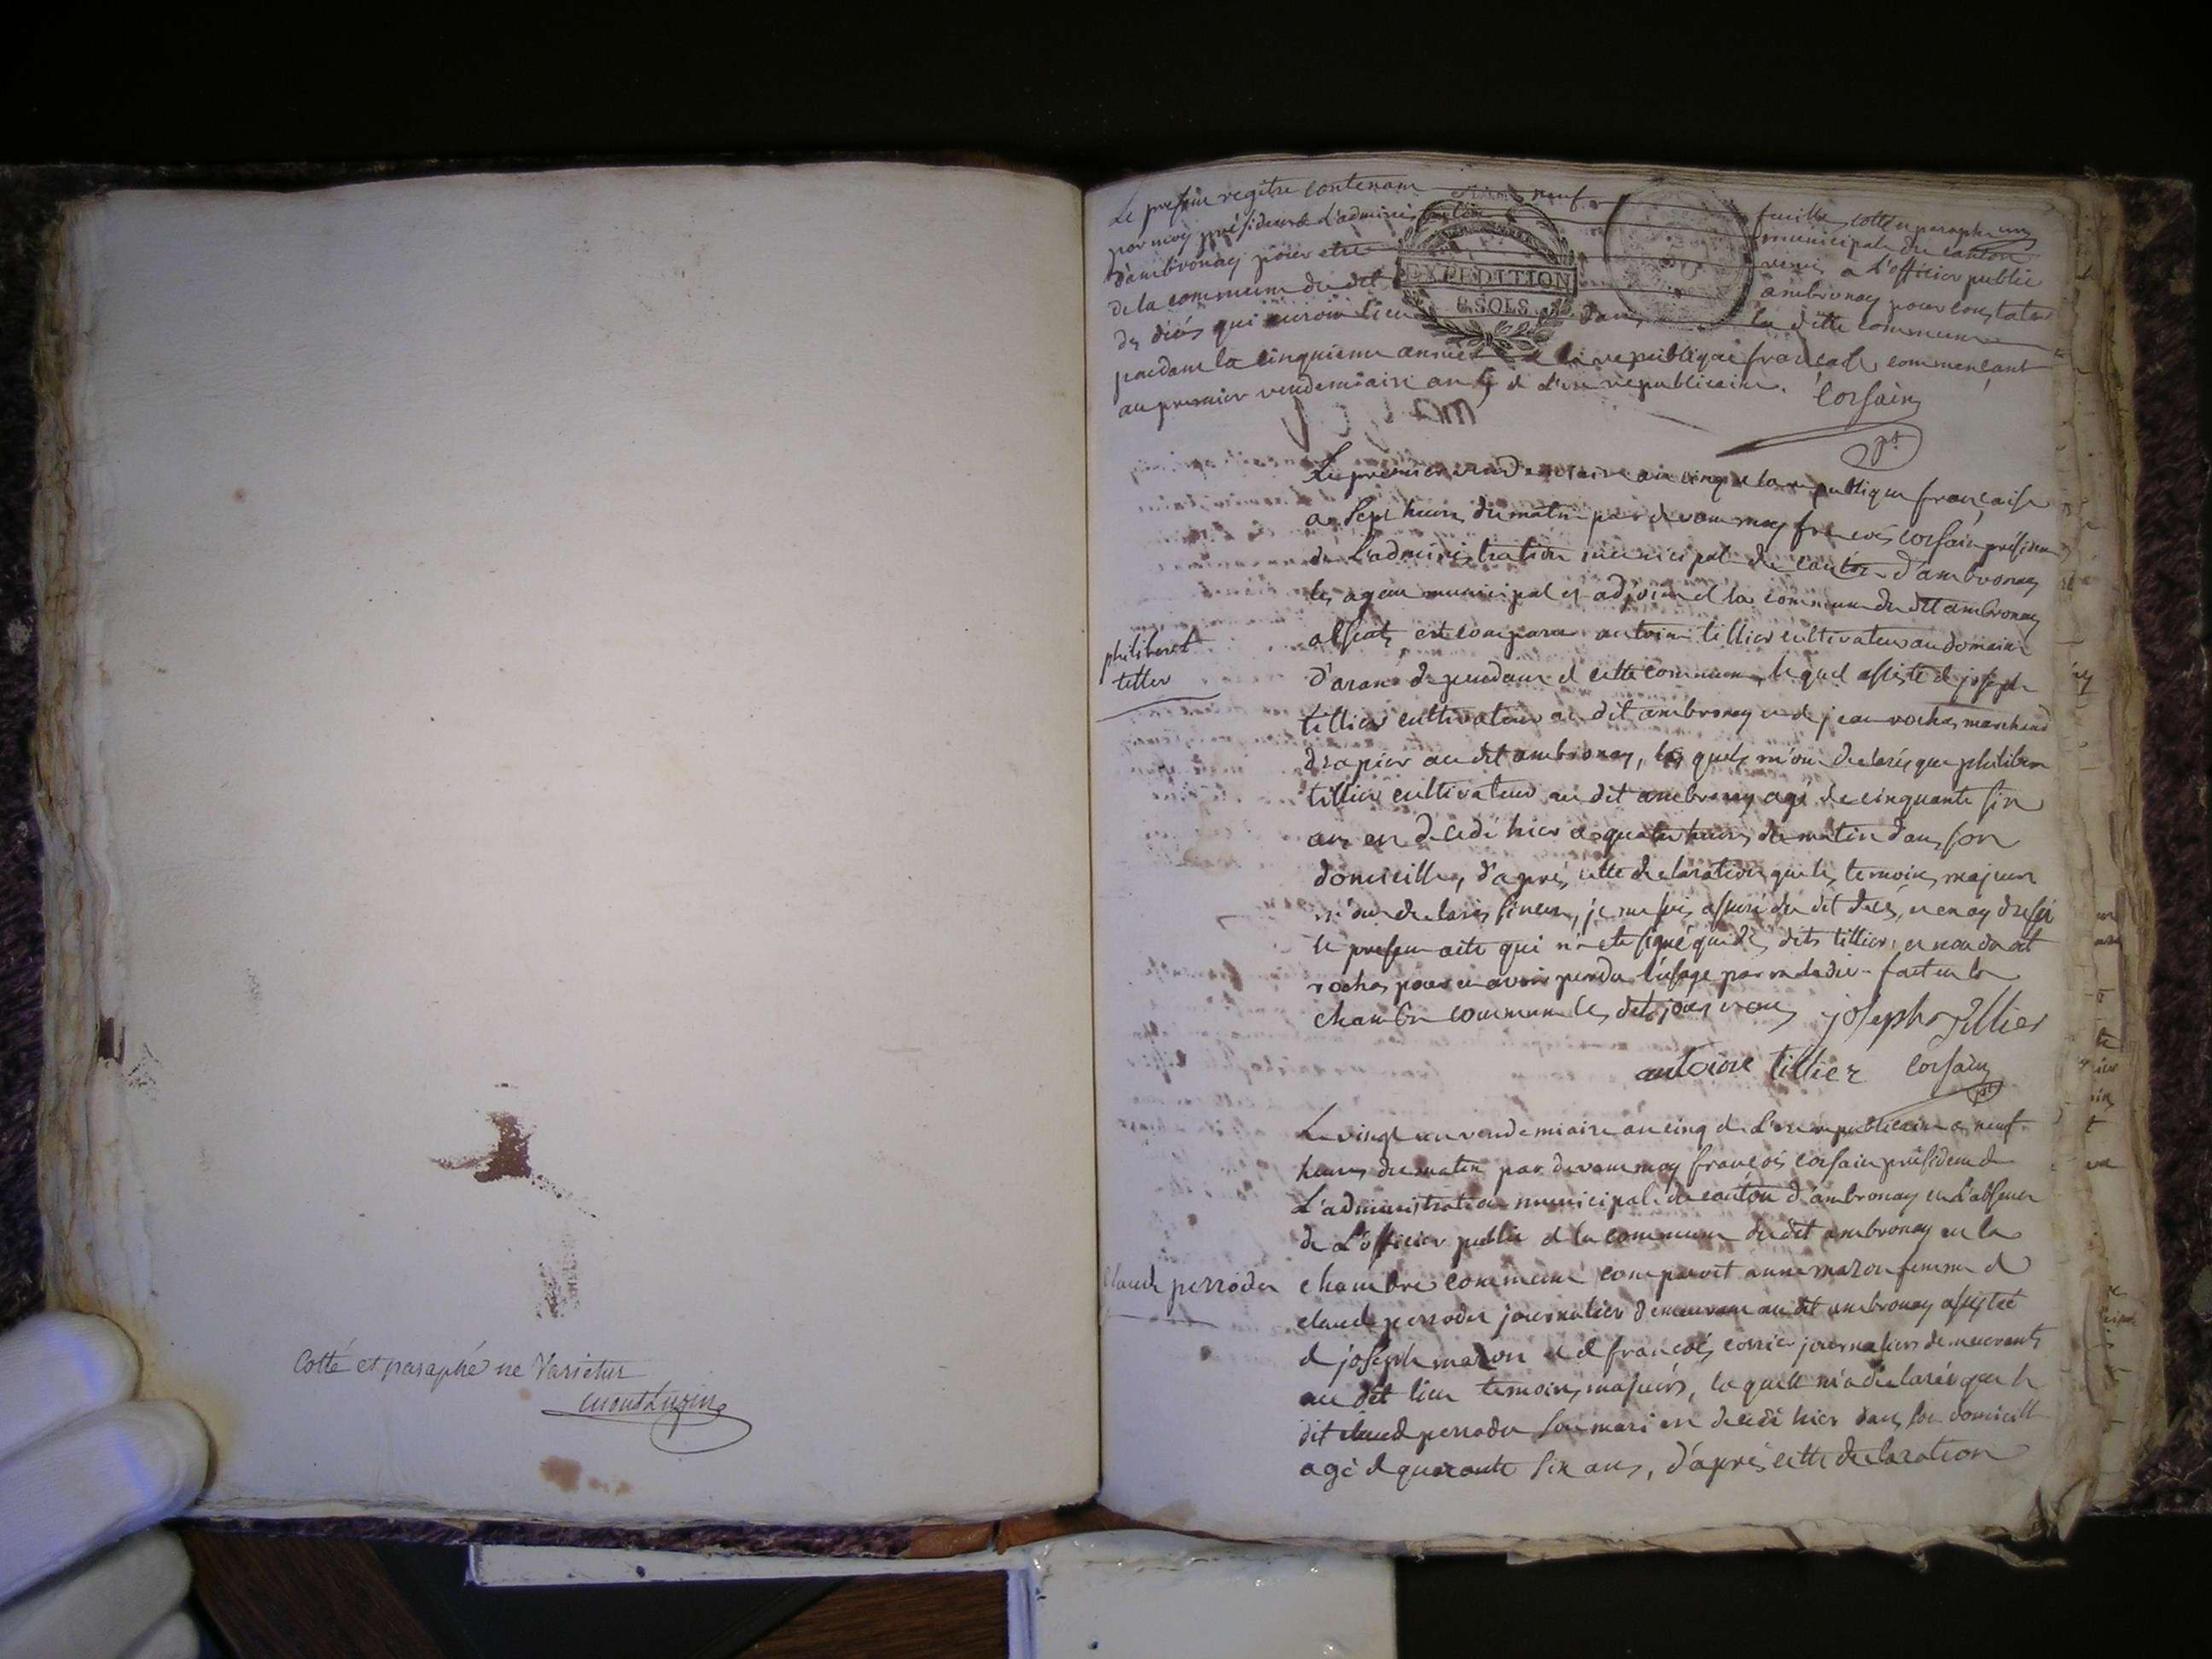 Cotté et paraphé ne Varietur
Le present regitre contenant neuf feuilles cotté et paraphé
par moy président de L'administration municipale du canton
d'ambronay pour etre remis a L'officier public
de la commune du dit ambronay pour constater
des décés qui auront lieu dans la ditte commune
pendant la cinquieme année de la republique francaise commencant
au premier vendemiaire an 5 de L'ere republicaine. Corsain
pt
EXPEDITION
6 SOLS
Le premier vendemiaire an cinq de la republique francaise
a Sept heures du matin par devant moy francois corsain président
de L'administration municipale du canton d'ambronay
les agent municipal et adjoint de la commune du dit ambronay
absents est comparu antoine tillier cultivateur au domaine
d'aran dependant de cette commune, lequel assisté de joseph
tillier cultivateur au dit ambronay et de jean rochas marchand
drapier au dit ambronay, les quels m'ont declarés que philibert
tillier cultivateur au dit ambronay agé de cinquante six
ans est decedé hier a quatre heures du matin dans son
domicille, d'aprés cette declaration que les temoins majeurs
m'ont declarés sincere, je me suis assuré du dit décés, et en ay dressé
le present acte qui n'a eté signé que des dits tillier et non du dit
rochas pour en avoir perdu l'usage par maladie. fait en la
chambre commune les dits jour et an joseph Tillier
antoine tillier Corsain
pt
philibert
tiller
Le vingt un vendemiaire an cinq de L'ere republicaine a neuf
heures du matin par devant moy francois corsain président de
L'administration municipale du canton d'ambronay en L'absence
de L'officier public de la commune du dit ambronay en la
chambre commune comparoit anne mazon femme de
claude perroder journalier demeurant au dit ambronay assisté
de joseph mazon et de francois journaliers demeurants
au dit lieu temoins majeurs, laquelle m'a declarée que le
dit claude perroder son mari est decedé hier dans son domicille
agé de quarante six ans, d'aprés cette declaration
claude perroder